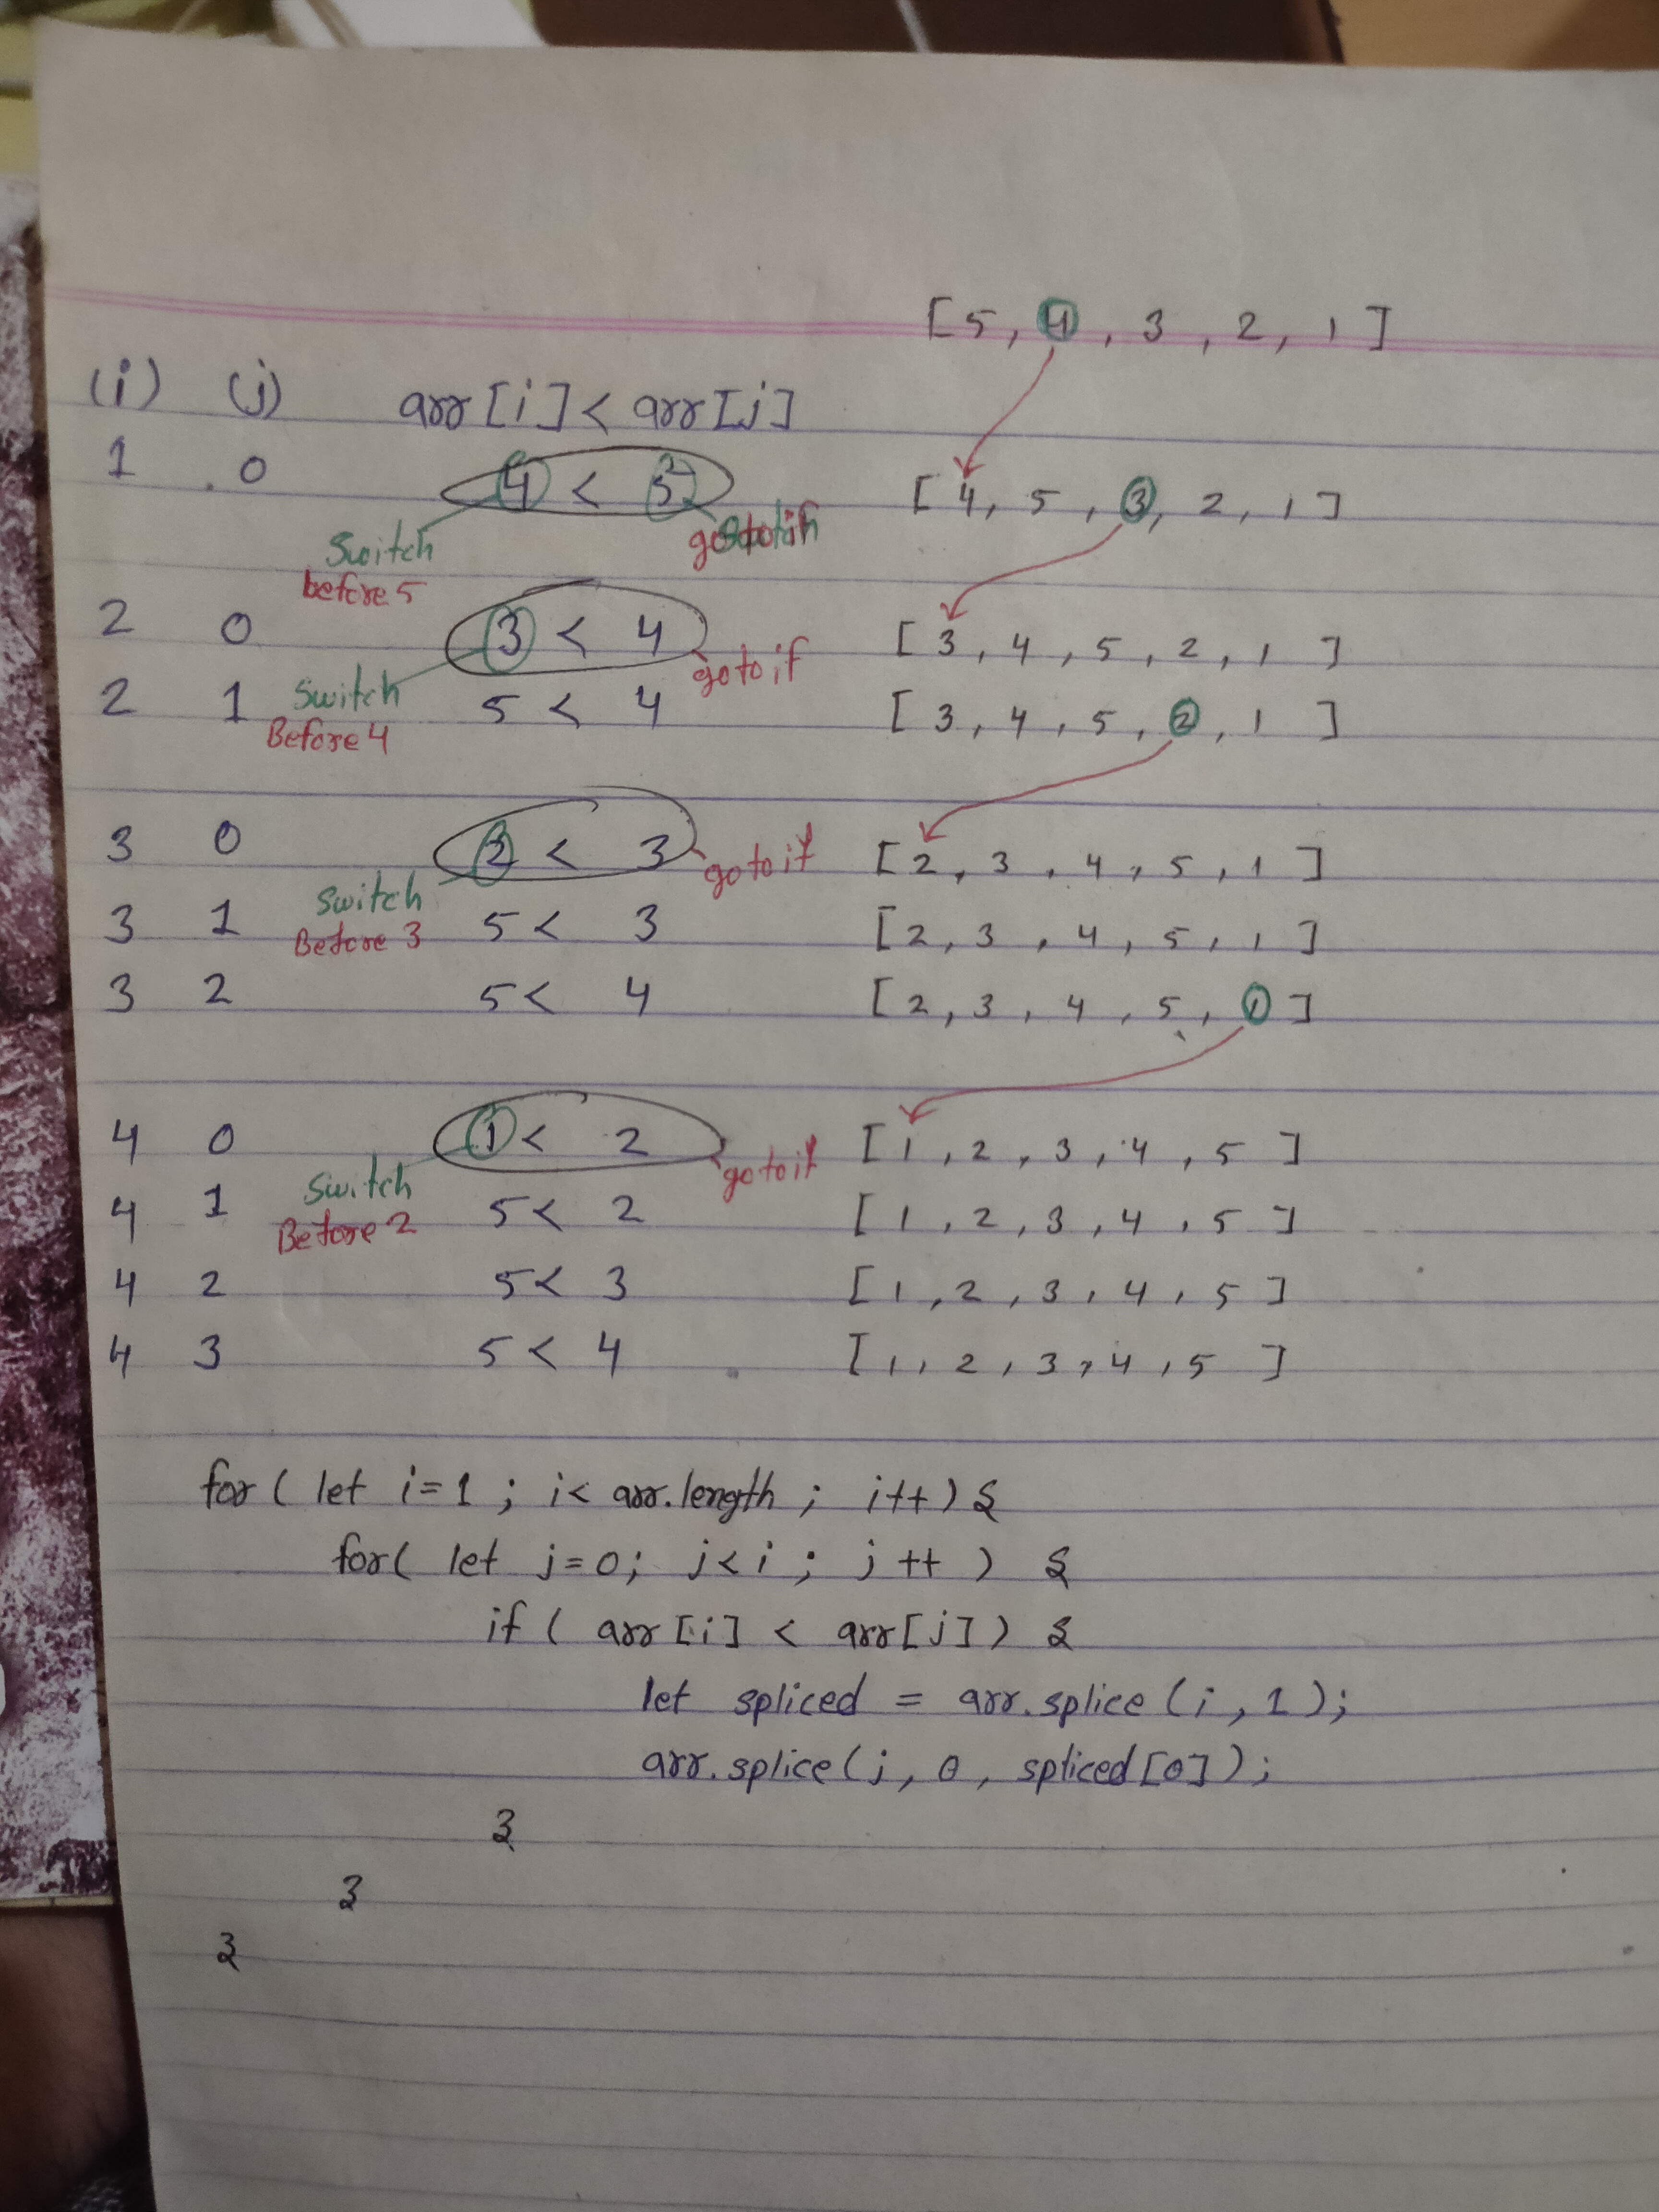 [5, 4, 3, 2, 1]
(i) (j) arr[i] < arr[j]
1 0 4 < 5 [4, 5, 3, 2, 1]
Switch before 5 go to if
2 0 3 < 4 [3, 4, 5, 2, 1]
go to if
2 1 5 < 4 [3, 4, 5, 2, 1]
Switch Before 4
3 0 2 < 3 [2, 3, 4, 5, 1]
go to if
3 1 5 < 3 [2, 3, 4, 5, 1]
Switch Before 3
3 2 5 < 4 [2, 3, 4, 5, 1]
4 0 1 < 2 [1, 2, 3, 4, 5]
go to if
4 1 5 < 2 [1, 2, 3, 4, 5]
Switch Before 2
4 2 5 < 3 [1, 2, 3, 4, 5]
4 3 5 < 4 [1, 2, 3, 4, 5]
for( let i=1 ; i< arr.length ; i++) {
for( let j=0; j<i ; j++ ) {
if ( arr[i] < arr[j]) {
let spliced = arr.splice(i,1);
arr.splice(j, 0, spliced[0]);
}
}
}